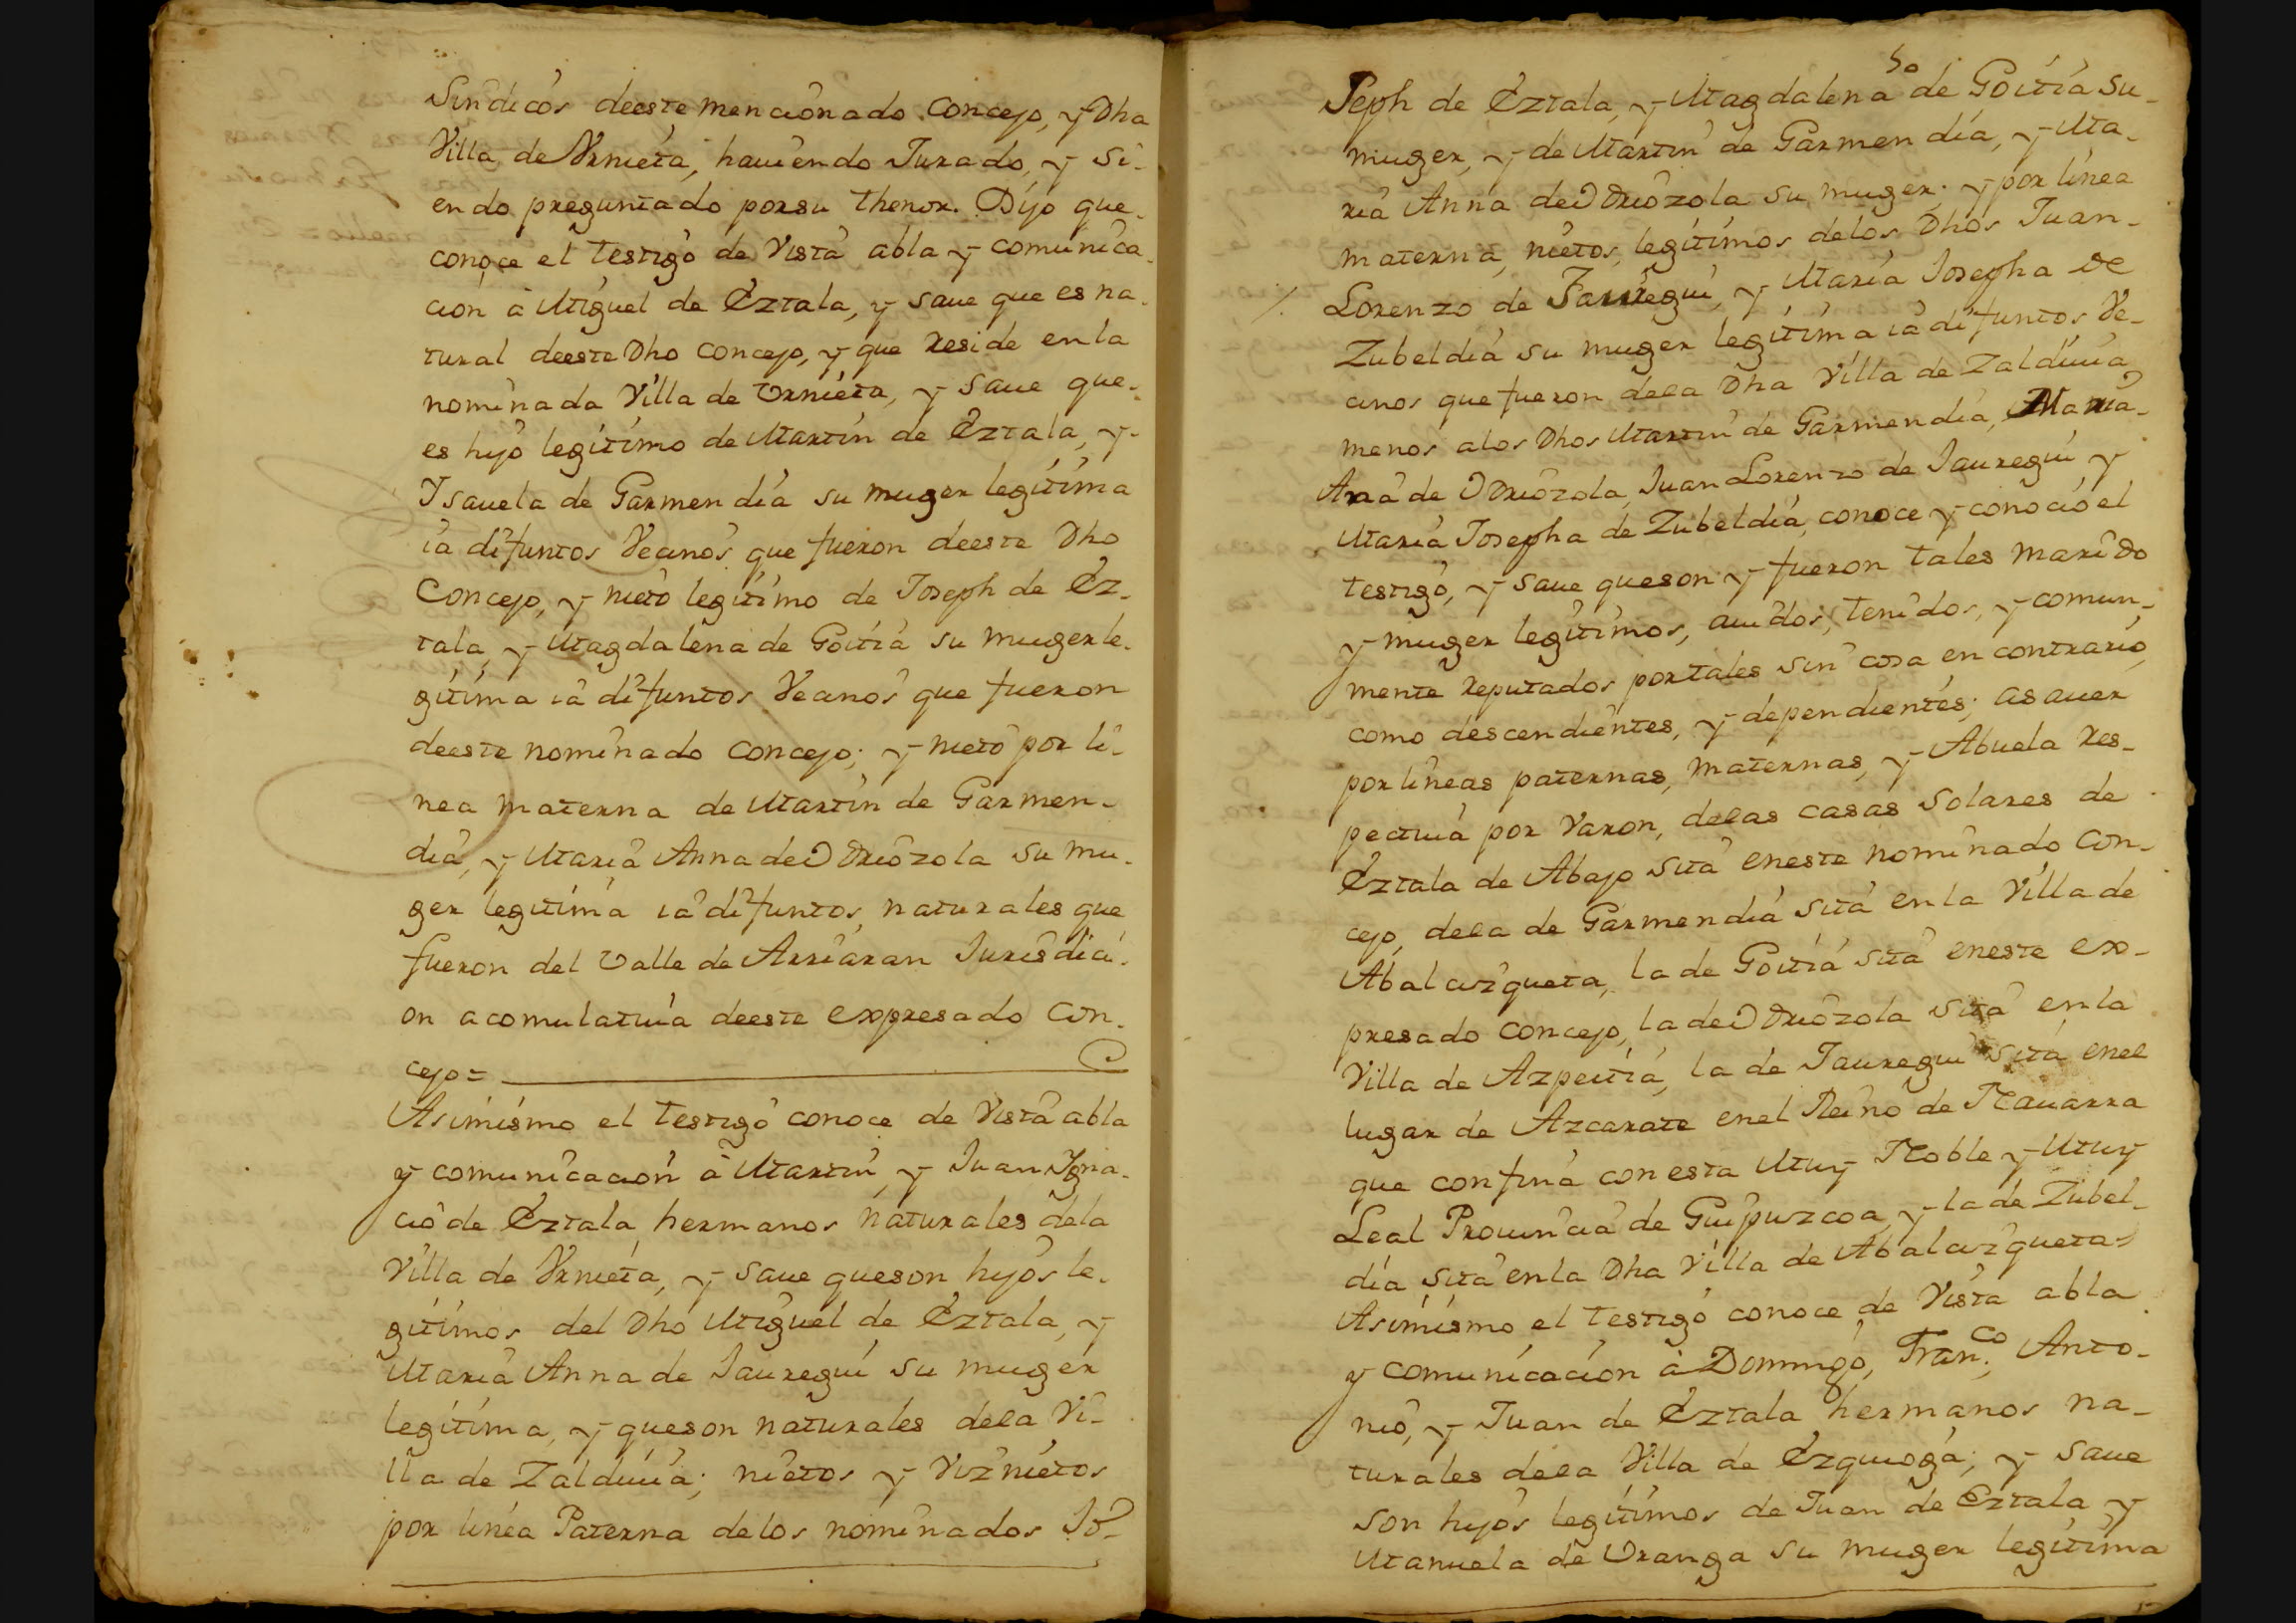 Sindicos deeste mencionado Concejo, y Dha
Villa de Vrnieta, hauiendo Jurado, y si-
endo preguntado porsu thenor. Dijo que
conoce el testigo de Vista abla y comunica-
cion à Miguel de Eztala, y saue que es na-
tural deeste Dho Concejo, y que Reside enla
nominada Villa de Vrnieta, y saue que
es hijo legitimo de Martin de Eztala, y
Isauela de Garmendia su muger legitima
ia difuntos Vecinos que fueron deeste Dho
Concejo, y nieto legitimo de Joseph de Ez-
tala, y Magdalena de Goitia su muger le-
gitima ia difuntos Vecinos que fueron
deeste nominado Concejo; y nieto por li-
nea materna de Martin de Garmen-
dia, y Maria Anna de Odriozola su mu-
ger legitima ia difuntos, naturales que
fueron del Valle de Arriaran Jurisdici-
on acomulatiua deeste expresado Con-
cejo=
Asimismo el testigo conoce de Vista abla
y comunicacion à Martin, y Juan Igna-
cio de Eztala, hermanos naturales dela
Villa de Vrnieta, y saue queson hijos le-
gitimos del Dho Miguel de Eztala, y
Maria Anna de Jauregui su muger
legitima, y queson naturales dela Vi-
lla de Zalduuia; nietos y Viznietos
por linea Paterna delos nominados Jo-
50
seph de Eztala, y Magdalena de Goitia su
muger, y de Martin de Garmendia, y Ma-
ria Anna de Odriozola su muger: y por linea
materna, nietos, legitimos delos Dhos Juan
Lorenzo de Jauregui, y Maria Josepha de
Zubeldia su muger legitima ia difuntos Ve-
cinos que fueron dela Dha Villa de Zalduuia
menos alos Dhos Martin de Garmendia, Maria
Ana de Odriozola, Juan Lorenzo de Jauregui y
Maria Josepha de Zubeldia, conoce y conocio el
testigo, y saue queson y fueron tales marido
y muger legitimos, auidos, tenidos, y comun-
mente Reputados portales sin cosa en contrario,
como descendientes, y dependientes; asauer
por lineas paternas, maternas, y Abuela Res-
pectiua por Varon, delas casas Solares de
Eztala de Abajo sita eneste nominado Con-
cejo, dela de Garmendia sita en la Villa de
Abalcizqueta, la de Goitia sita eneste ex-
presado Concejo, la de Odriozola sita enla
Villa de Azpeitia, la de Jauregui sita enel
lugar de Azcarate enel Reino de Nauarra
que confina con esta Muy Noble y Muy
Leal Prouincia de Guipuzcoa, y la de Zubel-
dia sita enla Dha Villa de Abalcizqueta=
Asimismo el testigo conoce de Vista abla
y comunicacion à Domingo, Fran.co Anto-
nio, y Juan de Eztala hermanos na-
turales dela Villa de Ezquioga; y saue
son hijos legitimos de Juan de Eztala y
Manuela de Vranga su muger legitima